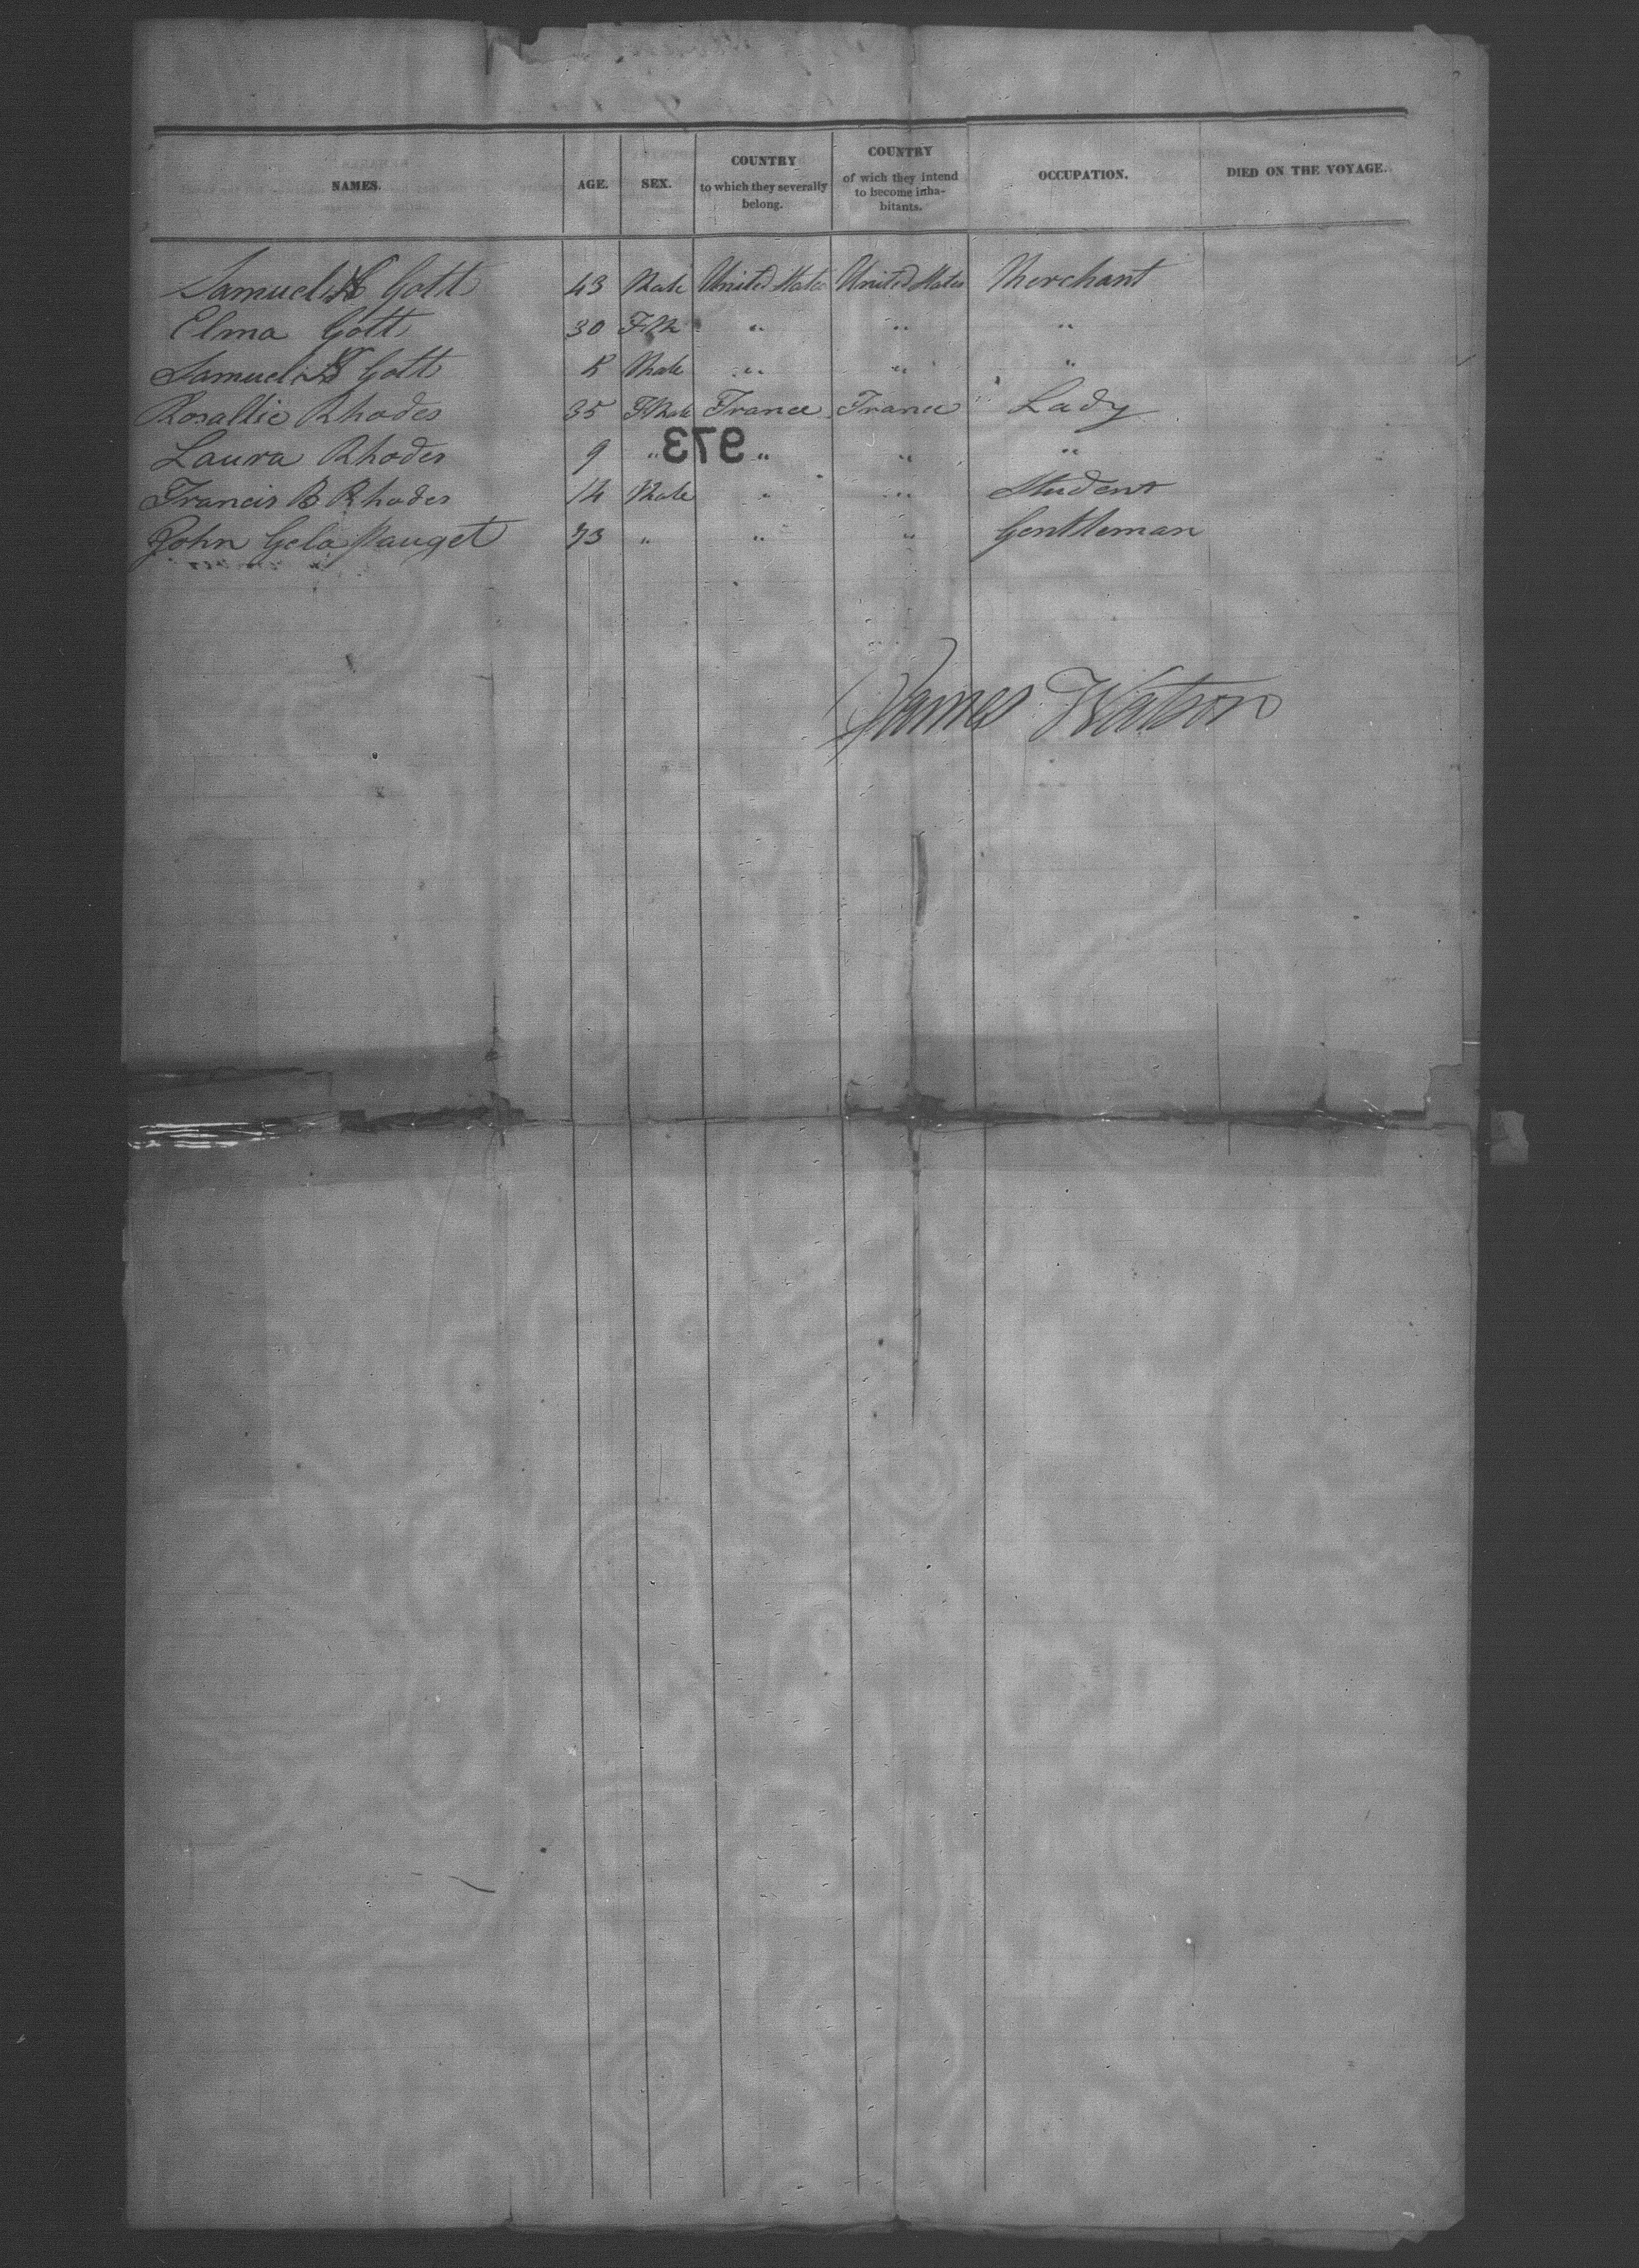 NAMES. AGE. SEX. COUNTRY to which they severally belong. COUNTRY of wich they intend to become inha-bitants. OCCUPATION. DIED ON THE VOYAGE.
Samuel Gott 43 Male United States United States Merchant
Elma Gott 30 " " "
Samuel Gott Male " " "
Rosallie Rhodes 35 France France Lady
Laura Rhodes 9 " " " "
973
Francis B Rhodes 14 Male " " Student
John 73 " " " Gentleman
James Watson